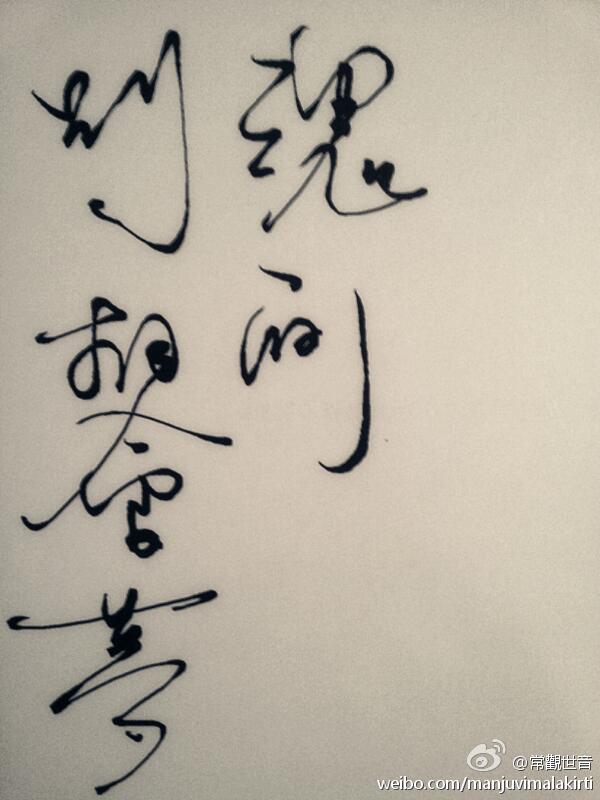 别相會夢
魂间
@常觀世音
weibo.com/manjuvimalakirti